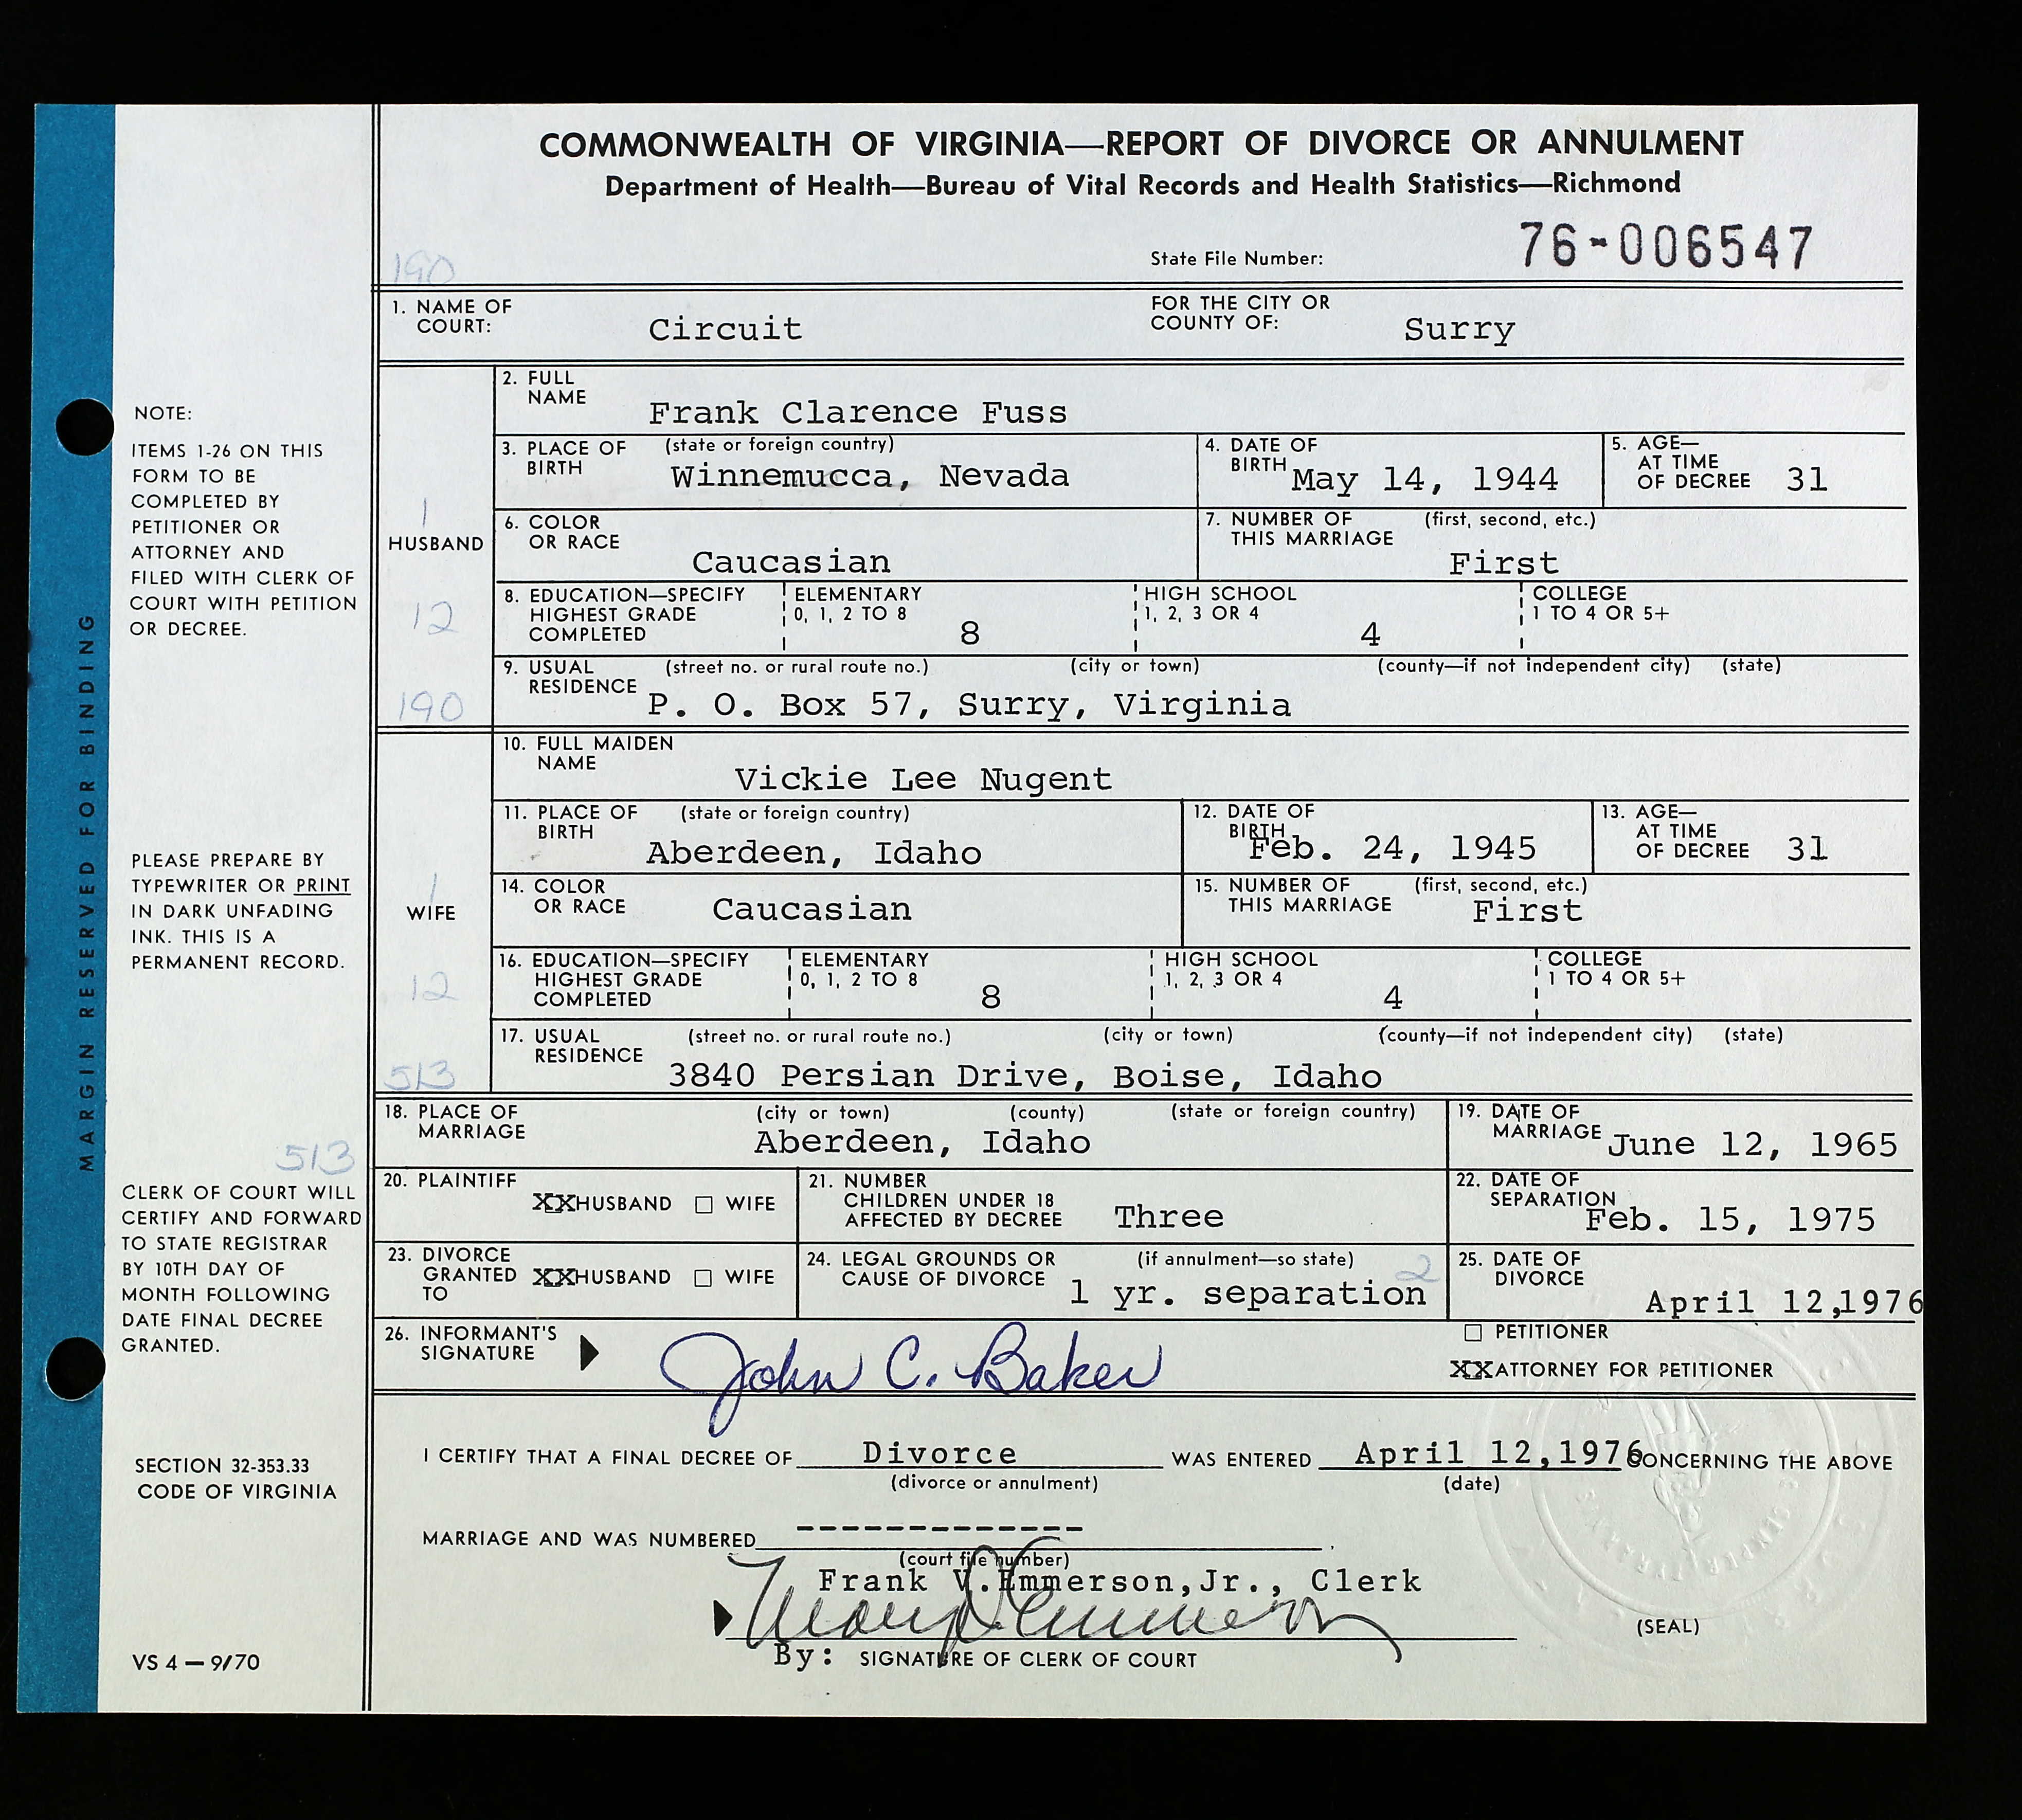 COMMONWEALTH OF VIRGINIA—REPORT OF DIVORCE OR ANNULMENT
Department of Health—Bureau of Vital Records and Health Statistics—Richmond
190
State File Number: 76-006547
1. NAME OF COURT: Circuit FOR THE CITY OR COUNTY OF: Surry
HUSBAND
1
12
190
2. FULL NAME Frank Clarence Fuss
3. PLACE OF BIRTH (state or foreign country) Winnemucca, Nevada
4. DATE OF BIRTH May 14, 1944
5. AGE— AT TIME OF DECREE 31
6. COLOR OR RACE Caucasian
7. NUMBER OF THIS MARRIAGE (first, second, etc.) First
8. EDUCATION—SPECIFY HIGHEST GRADE COMPLETED ELEMENTARY 0, 1, 2 TO 8 8 HIGH SCHOOL 1, 2, 3 OR 4 4 COLLEGE 1 TO 4 OR 5+
9. USUAL RESIDENCE (street no. or rural route no.) (city or town) (county—if not independent city) (state)
P. O. Box 57, Surry, Virginia
WIFE
1
12
513
10. FULL MAIDEN NAME Vickie Lee Nugent
11. PLACE OF BIRTH (state or foreign country) Aberdeen, Idaho
12. DATE OF BIRTH Feb. 24, 1945
13. AGE— AT TIME OF DECREE 31
14. COLOR OR RACE Caucasian
15. NUMBER OF THIS MARRIAGE (first, second, etc.) First
16. EDUCATION—SPECIFY HIGHEST GRADE COMPLETED ELEMENTARY 0, 1, 2 TO 8 8 HIGH SCHOOL 1, 2, 3 OR 4 4 COLLEGE 1 TO 4 OR 5+
17. USUAL RESIDENCE (street no. or rural route no.) (city or town) (county—if not independent city) (state)
3840 Persian Drive, Boise, Idaho
18. PLACE OF MARRIAGE (city or town) (county) (state or foreign country) Aberdeen, Idaho
19. DATE OF MARRIAGE June 12, 1965
20. PLAINTIFF XX HUSBAND ☐ WIFE
21. NUMBER CHILDREN UNDER 18 AFFECTED BY DECREE Three
22. DATE OF SEPARATION Feb. 15, 1975
23. DIVORCE GRANTED TO XX HUSBAND ☐ WIFE
24. LEGAL GROUNDS OR CAUSE OF DIVORCE (if annulment—so state) 2 1 yr. separation
25. DATE OF DIVORCE April 12,1976
26. INFORMANT'S SIGNATURE John C. Baker
☐ PETITIONER
XX ATTORNEY FOR PETITIONER
I CERTIFY THAT A FINAL DECREE OF Divorce WAS ENTERED April 12,1976 CONCERNING THE ABOVE
(divorce or annulment) (date)
MARRIAGE AND WAS NUMBERED -------------.
(court file number)
Frank V.Emmerson,Jr., Clerk
Emmerson
By: SIGNATURE OF CLERK OF COURT
(SEAL)
MARGIN RESERVED FOR BINDING
NOTE:
ITEMS 1-26 ON THIS
FORM TO BE
COMPLETED BY
PETITIONER OR
ATTORNEY AND
FILED WITH CLERK OF
COURT WITH PETITION
OR DECREE.
PLEASE PREPARE BY
TYPEWRITER OR PRINT
IN DARK UNFADING
INK. THIS IS A
PERMANENT RECORD.
513
CLERK OF COURT WILL
CERTIFY AND FORWARD
TO STATE REGISTRAR
BY 10TH DAY OF
MONTH FOLLOWING
DATE FINAL DECREE
GRANTED.
SECTION 32-353.33
CODE OF VIRGINIA
VS 4 — 9/70